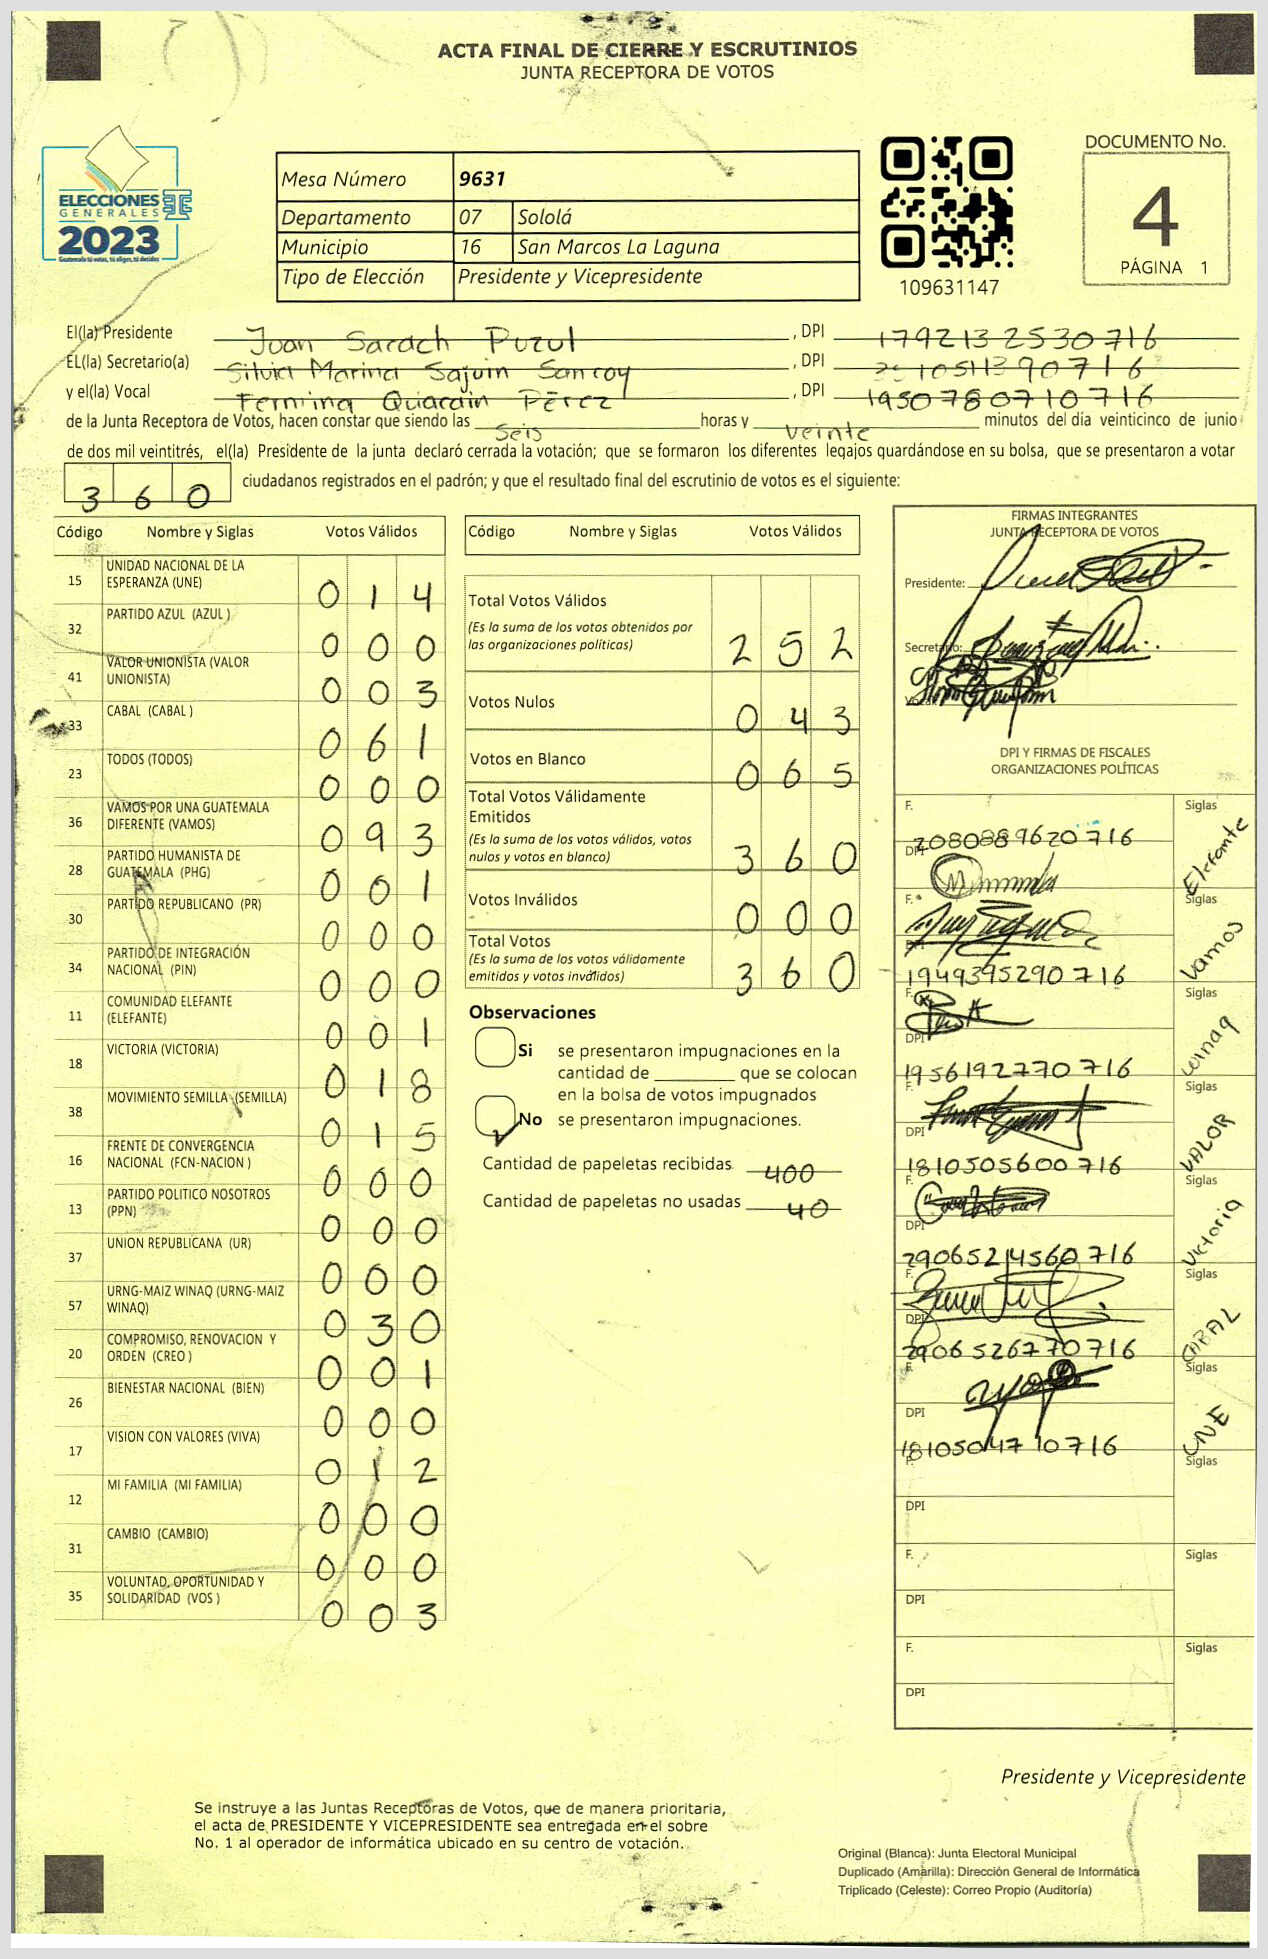 ACTA FINAL DE CIERRE Y ESCRUTINIOS
JUNTA RECEPTORA DE VOTOS
ELECCIONES
GENERALES
2023
Guatemala tú votas, tú eliges, tú decides
Mesa Número 9631
Departamento 07 Sololá
Municipio 16 San Marcos La Laguna
Tipo de Elección Presidente y Vicepresidente
109631147
DOCUMENTO No.
4
PÁGINA 1
El(la) Presidente Juan Sacach Puzul , DPI 1792132530716
EL(la) Secretario(a) Silvia Marina Sajuin Sancoy , DPI 10511390716
y el(la) Vocal Fermina Quiacain Pérez , DPI 1950780710716
de la Junta Receptora de Votos, hacen constar que siendo las seis horas y veinte minutos del día veinticinco de junio
de dos mil veintitrés, el(la) Presidente de la junta declaró cerrada la votación; que se formaron los diferentes legajos quardándose en su bolsa, que se presentaron a votar
360 ciudadanos registrados en el padrón; y que el resultado final del escrutinio de votos es el siguiente:
Código Nombre y Siglas Votos Válidos
15 UNIDAD NACIONAL DE LA ESPERANZA (UNE) 014
32 PARTIDO AZUL (AZUL ) 000
41 VALOR UNIONISTA (VALOR UNIONISTA) 003
33 CABAL (CABAL ) 061
23 TODOS (TODOS) 000
36 VAMOS POR UNA GUATEMALA DIFERENTE (VAMOS) 093
28 PARTIDO HUMANISTA DE GUATEMALA (PHG) 001
30 PARTIDO REPUBLICANO (PR) 000
34 PARTIDO DE INTEGRACIÓN NACIONAL (PIN) 000
11 COMUNIDAD ELEFANTE (ELEFANTE) 001
18 VICTORIA (VICTORIA) 018
38 MOVIMIENTO SEMILLA (SEMILLA) 015
16 FRENTE DE CONVERGENCIA NACIONAL (FCN-NACION ) 000
13 PARTIDO POLITICO NOSOTROS (PPN) 000
37 UNION REPUBLICANA (UR) 000
57 URNG-MAIZ WINAQ (URNG-MAIZ WINAQ) 030
20 COMPROMISO, RENOVACION Y ORDEN (CREO ) 001
26 BIENESTAR NACIONAL (BIEN) 000
17 VISION CON VALORES (VIVA) 012
12 MI FAMILIA (MI FAMILIA) 000
31 CAMBIO (CAMBIO) 000
35 VOLUNTAD, OPORTUNIDAD Y SOLIDARIDAD (VOS ) 003
Código Nombre y Siglas Votos Válidos
Total Votos Válidos
(Es la suma de los votos obtenidos por
las organizaciones políticas) 252
Votos Nulos 043
Votos en Blanco 065
Total Votos Válidamente
Emitidos
(Es la suma de los votos válidos, votos
nulos y votos en blanco) 360
Votos Inválidos 000
Total Votos
(Es la suma de los votos válidamente
emitidos y votos inválidos) 360
Observaciones
Si se presentaron impugnaciones en la
cantidad de ________ que se colocan
en la bolsa de votos impugnados
No se presentaron impugnaciones.
Cantidad de papeletas recibidas 400
Cantidad de papeletas no usadas 40
FIRMAS INTEGRANTES
JUNTA RECEPTORA DE VOTOS
Presidente:
Secretario:
DPI Y FIRMAS DE FISCALES
ORGANIZACIONES POLÍTICAS
F. Siglas
DPI 2080889620716 Elefante
F. Siglas
DPI 1949395290716 Vamos
F. Siglas
DPI 1956192770716 Winaq
F. Siglas
DPI 1810505600716 VALOR
F. Siglas
DPI 29065214560716 Victoria
F. Siglas
DPI 2906526770716 CABAL
F. Siglas
DPI 1810504710716 UNE
F. Siglas
DPI
F. Siglas
DPI
F. Siglas
DPI
Presidente y Vicepresidente
Se instruye a las Juntas Receptoras de Votos, que de manera prioritaria,
el acta de PRESIDENTE Y VICEPRESIDENTE sea entregada en el sobre
No. 1 al operador de informática ubicado en su centro de votación.
Original (Blanca): Junta Electoral Municipal
Duplicado (Amarilla): Dirección General de Informática
Triplicado (Celeste): Correo Propio (Auditoría)